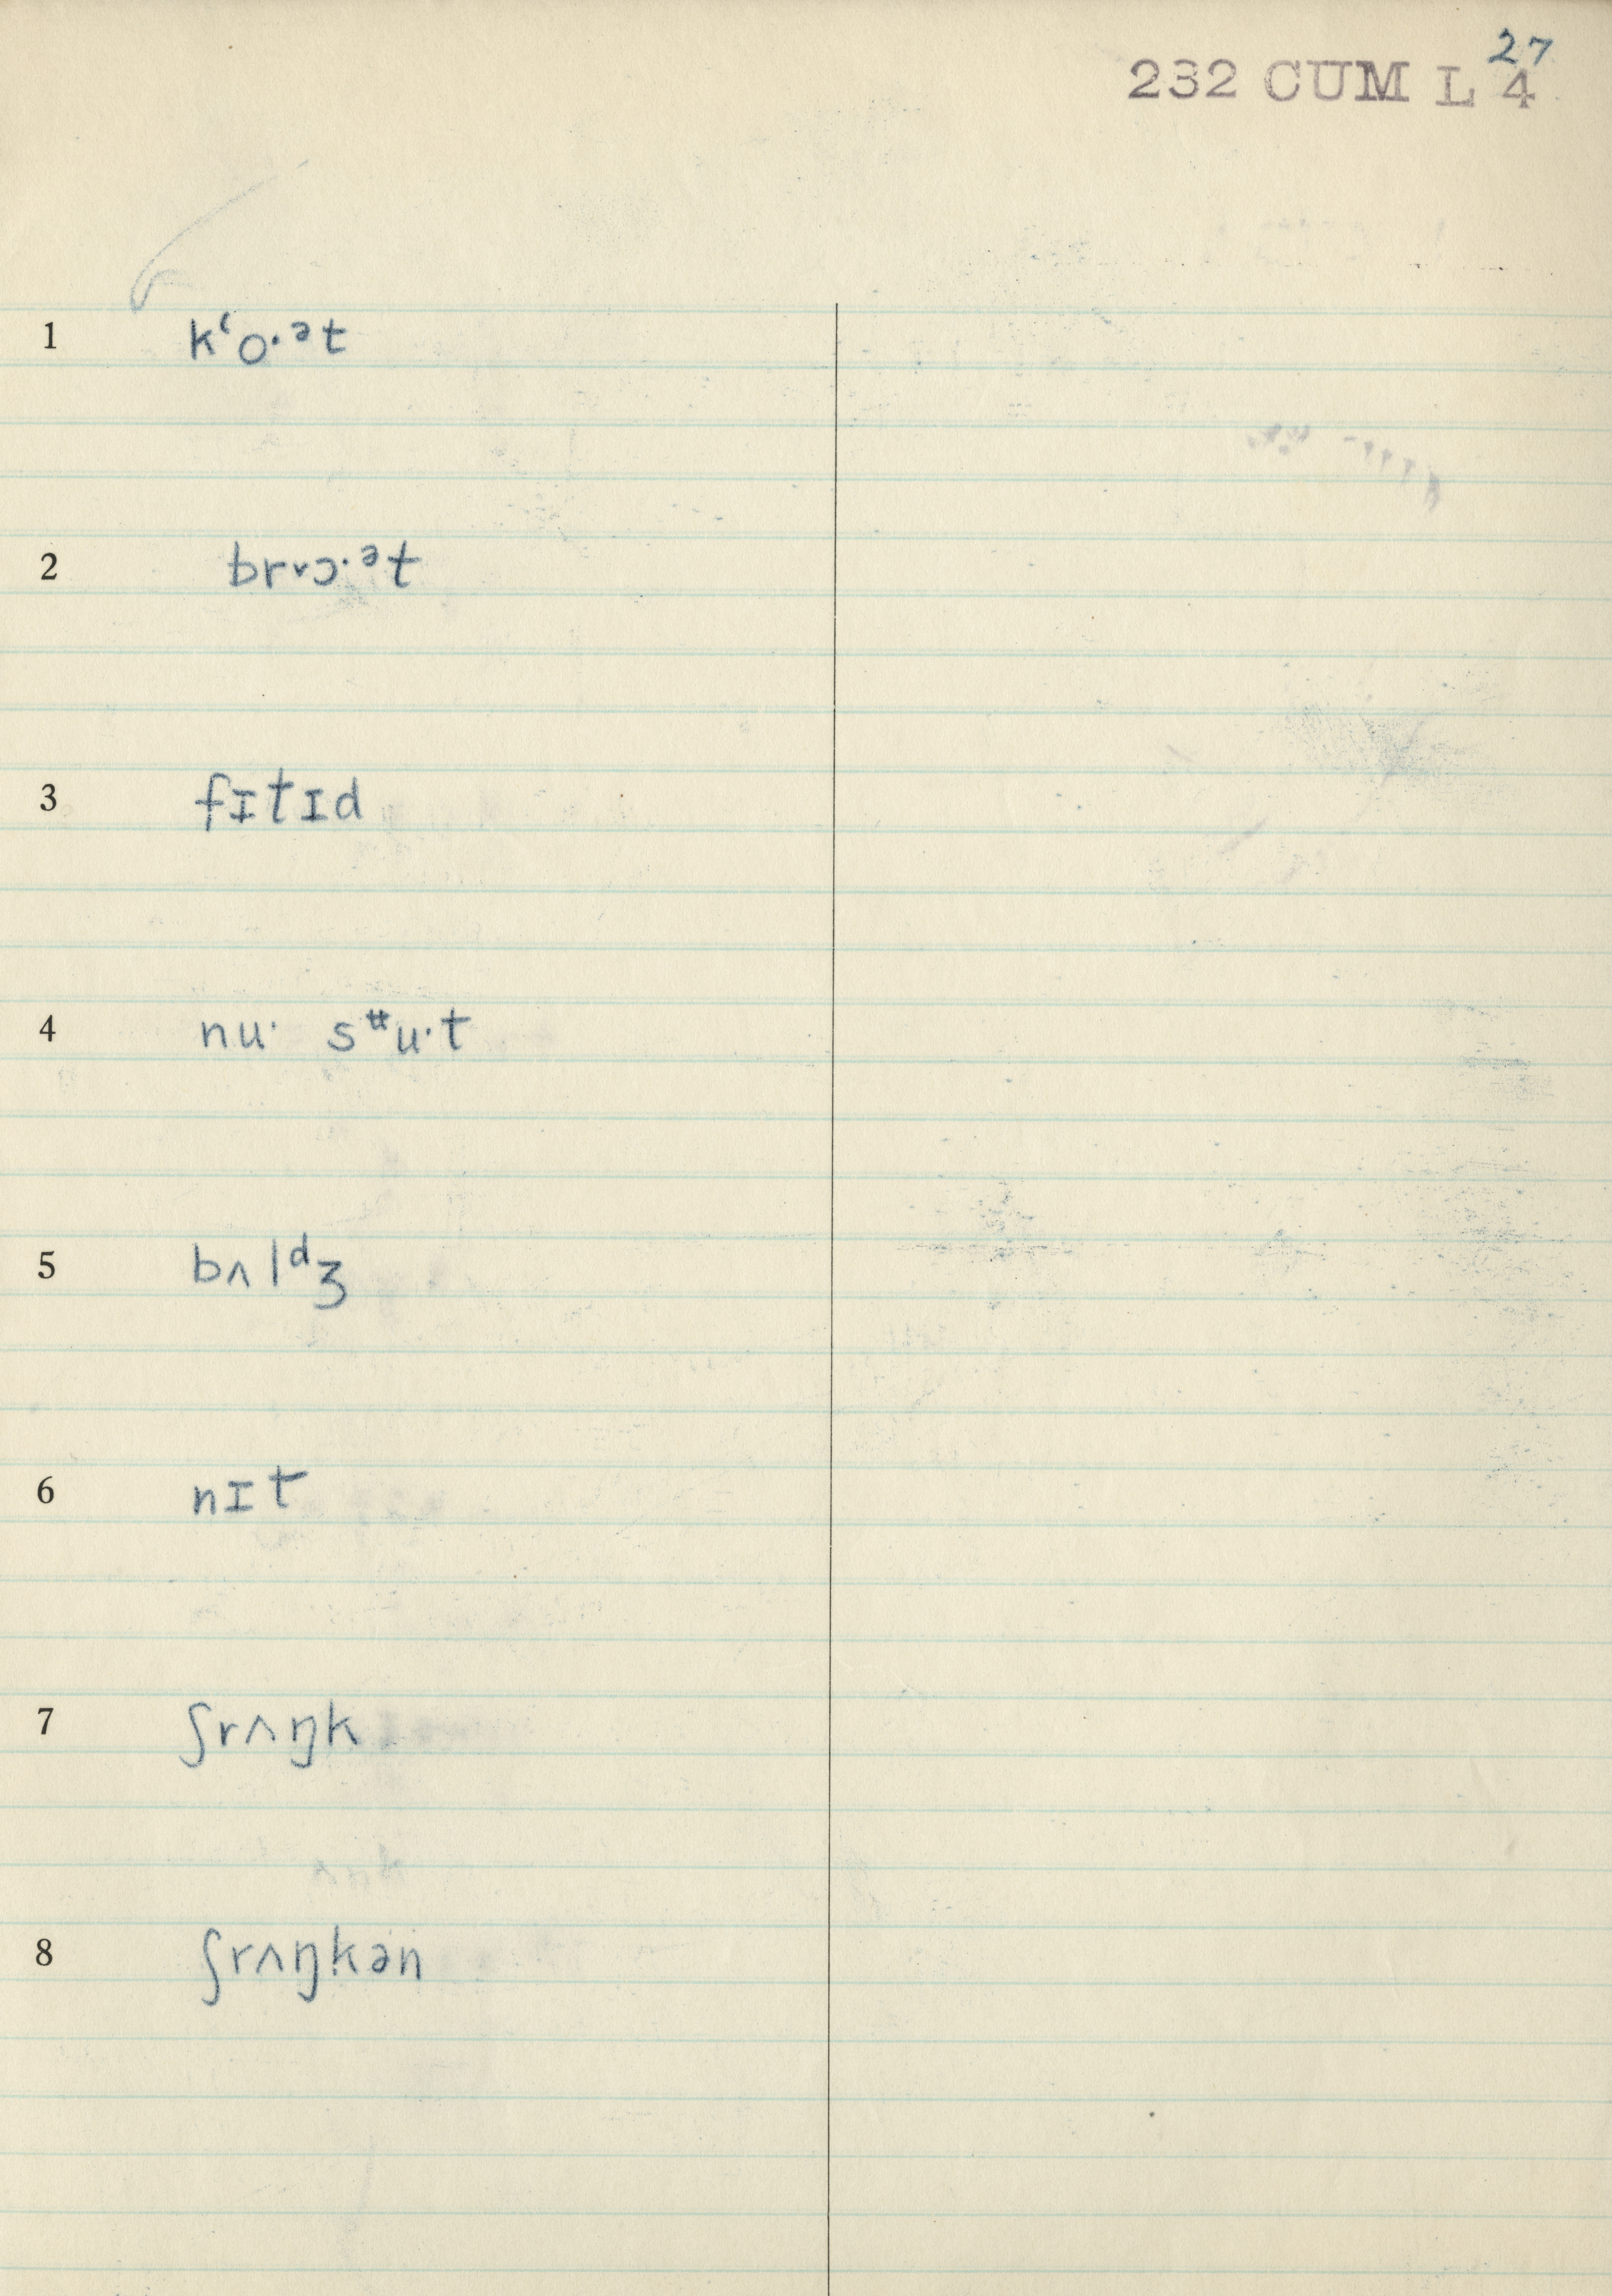 27
232 CUM L 4
1 kʻo·ᵊt
2 br˅ɔ·ᵊt
3 fɪtɪd
4 nu· sᶶu·t
5 bʌlᵈʒ
6 nɪt
7 ʃrʌŋk
8 ʃrʌŋkən